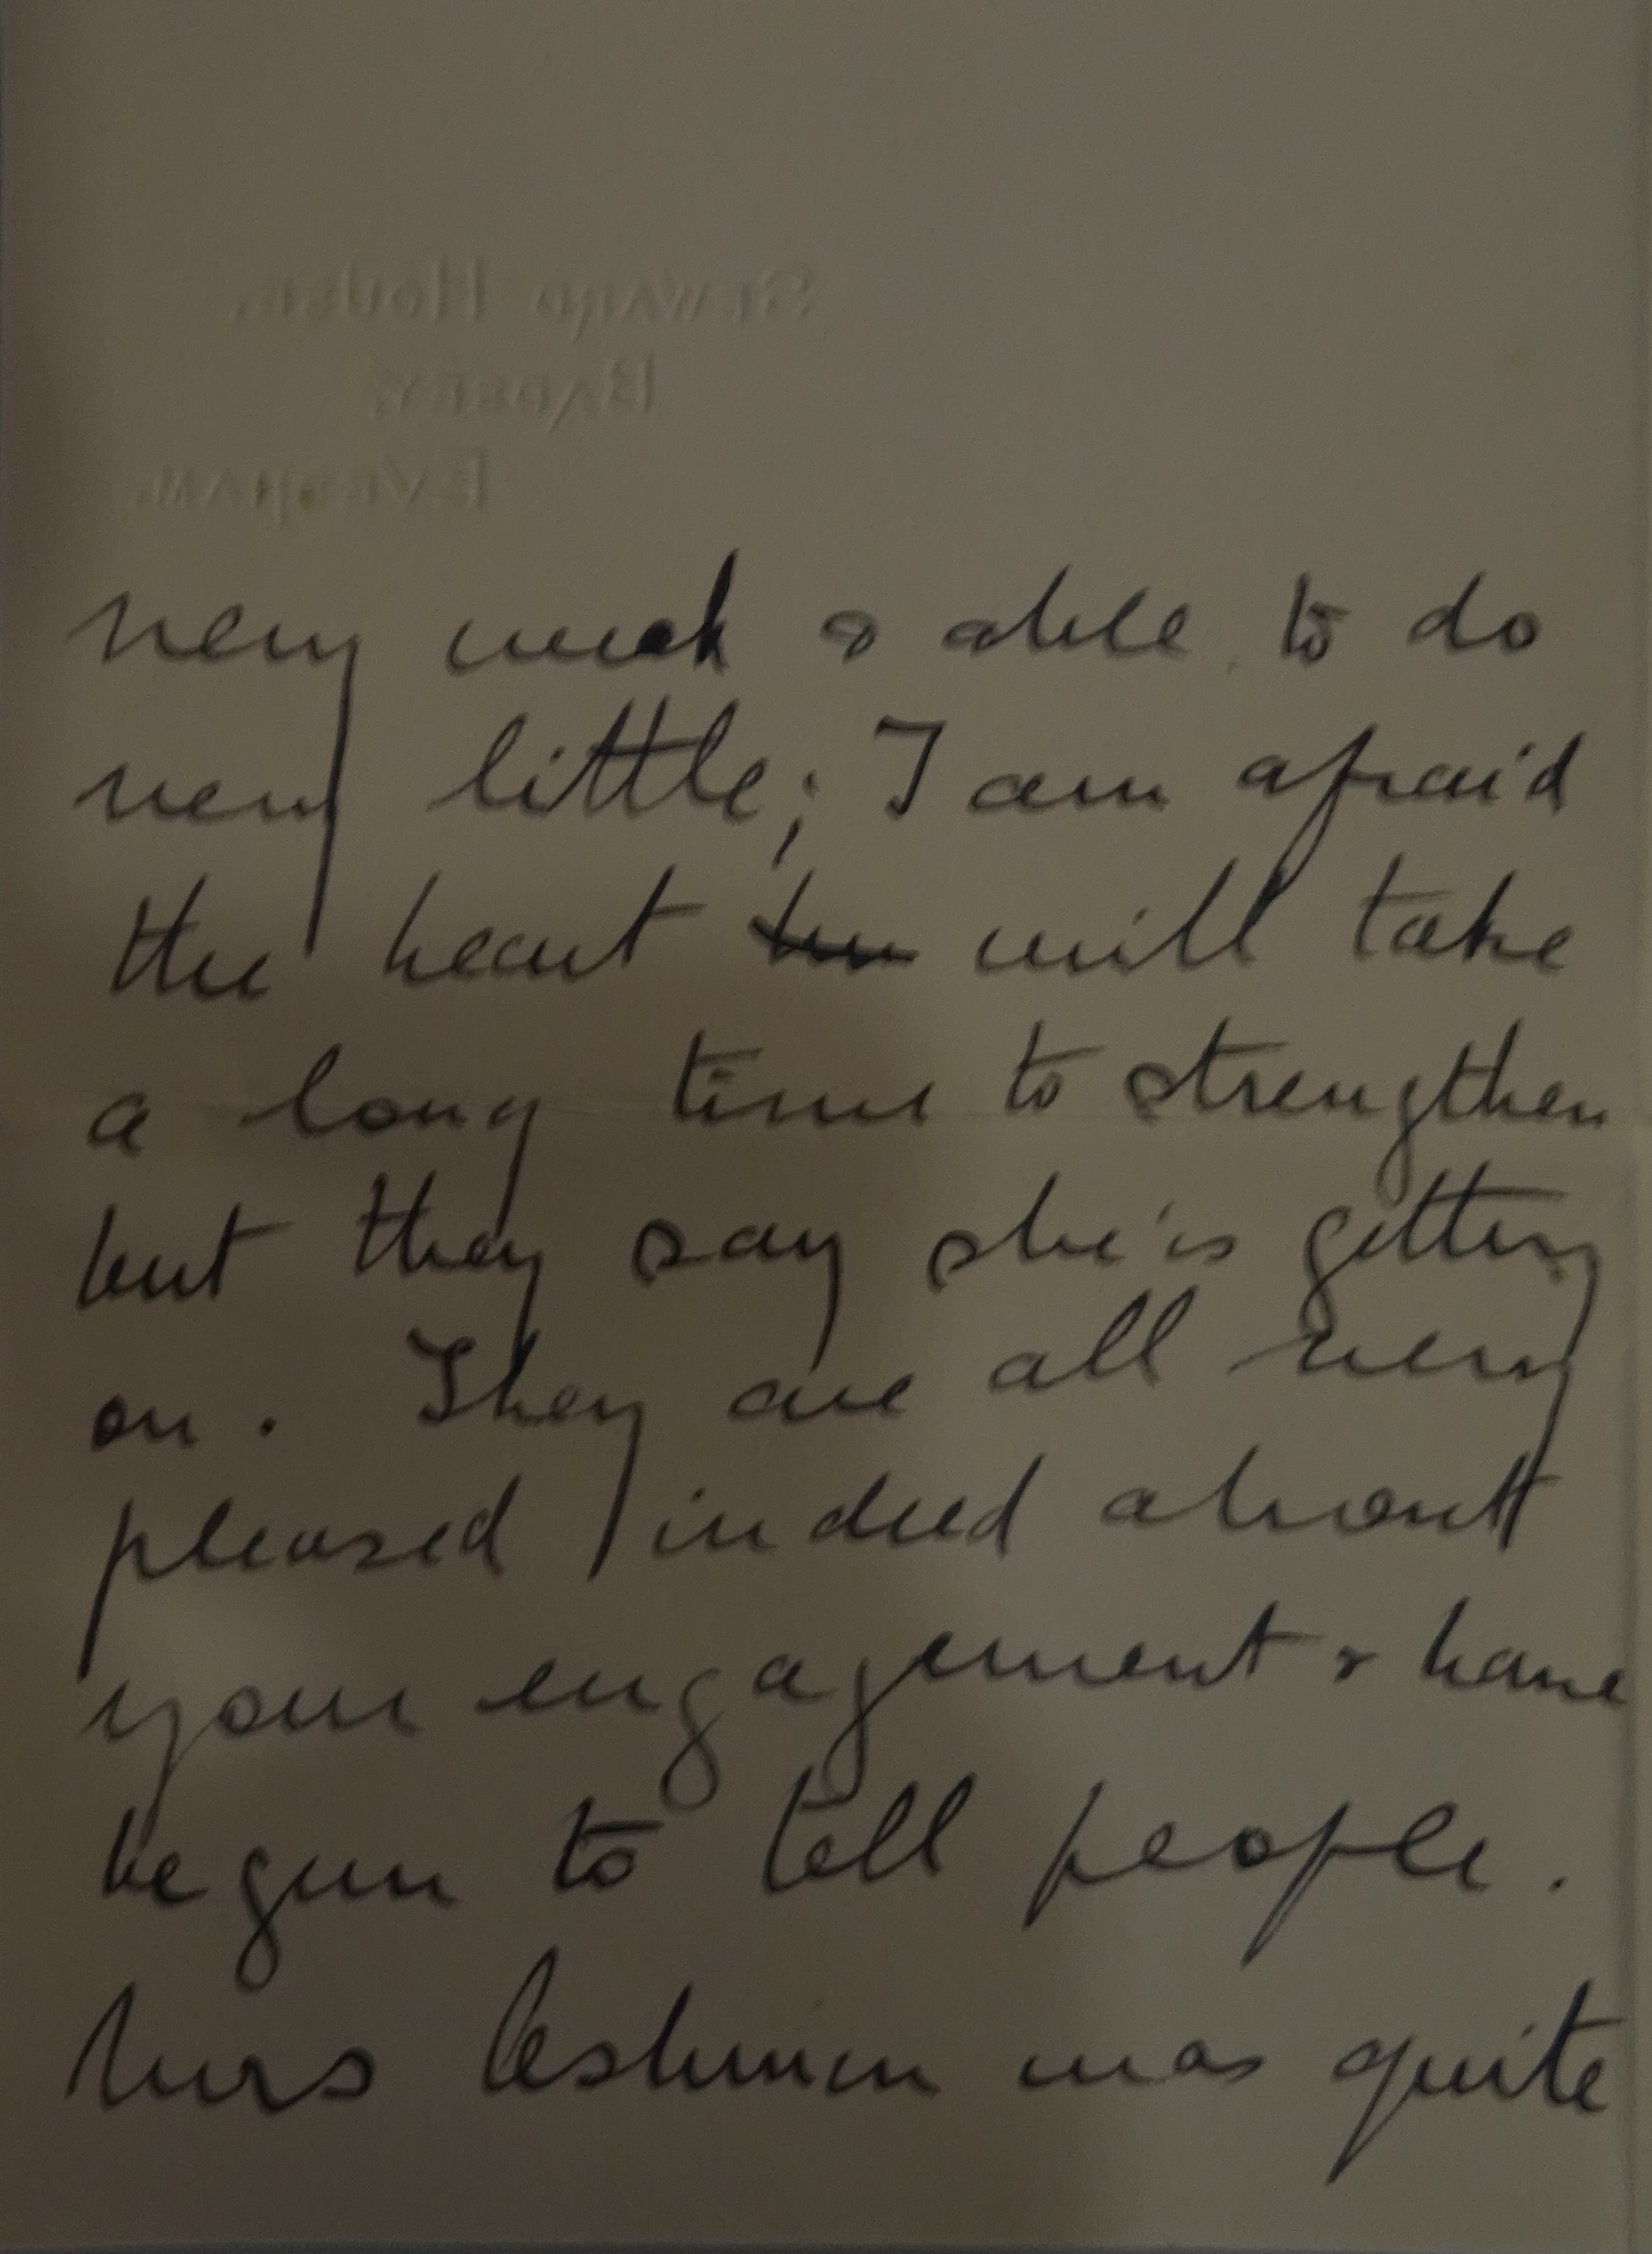 SEWARD HOUSE,
BADSEY,
EVESHAM.
very weak & able to do
very little; I am afraid
the heart will take
a long time to strengthen
but they say she is getting
on. They are all very
pleased indeed about
your engagement & have
begun to tell people.
Mrs was quite